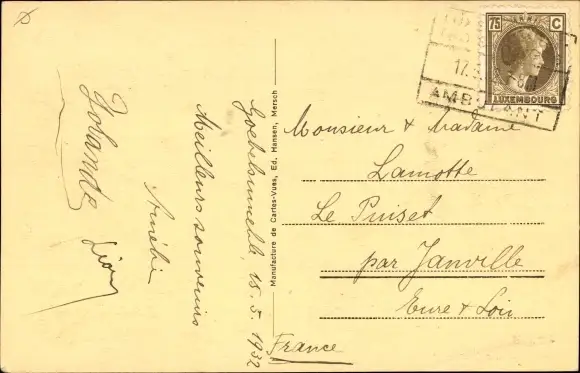 75 C
LUXEMBOURG
17.5
AMBULANT
Goebelsmuehle, 15.5.1932
Meilleurs souvenirs
Yolande
Manufacture de Cartes-Vues, Ed. Hansen, Mersch
Monsieur & Madame
Lamotte
Le Puiset
par Janville
Eure & Loir
France